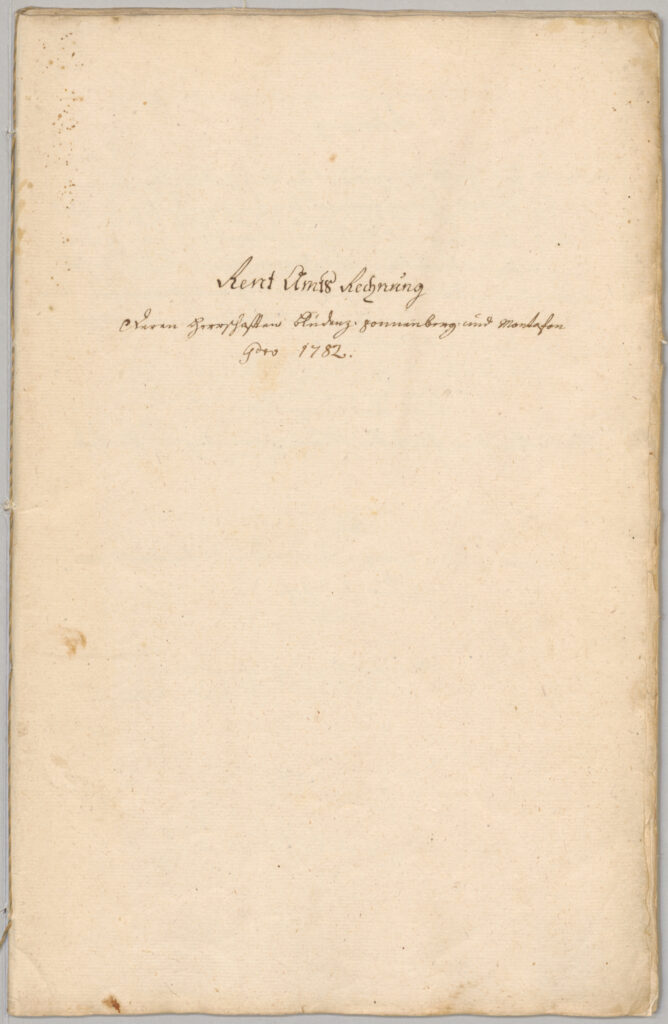 Rent Amts Rechnung
Deren Herrschaften Bludenz, Sonnenberg und Montafon
pro 1782.